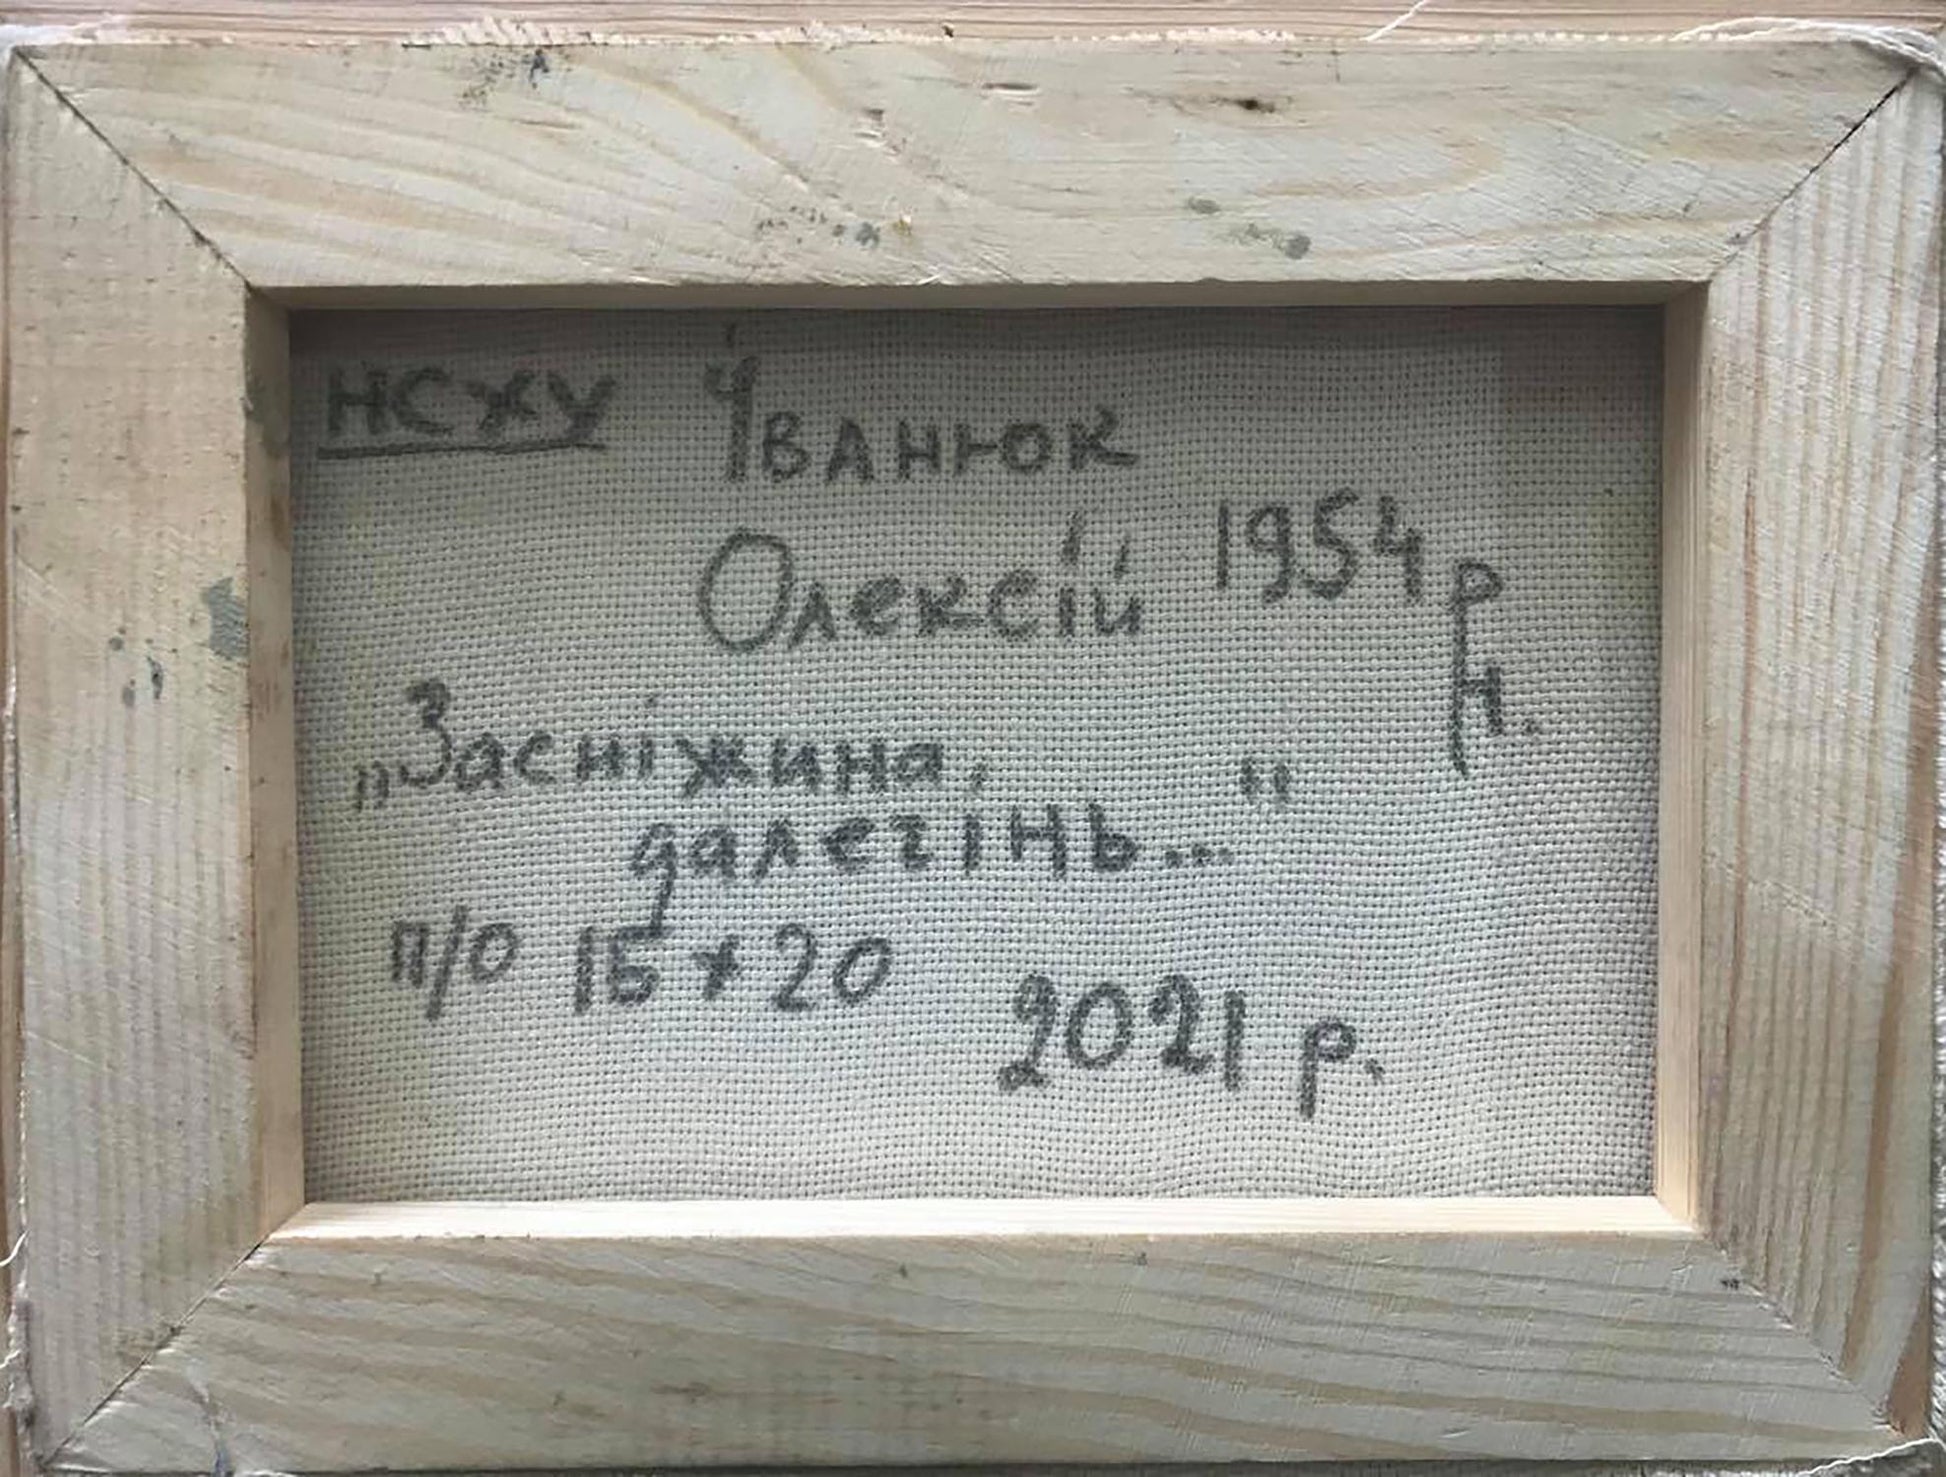 НСХУ Іванюк
Олексій 1954 р.н.
„Засніжина,
далегінь..."
п/о 15 x 20
2021 р.